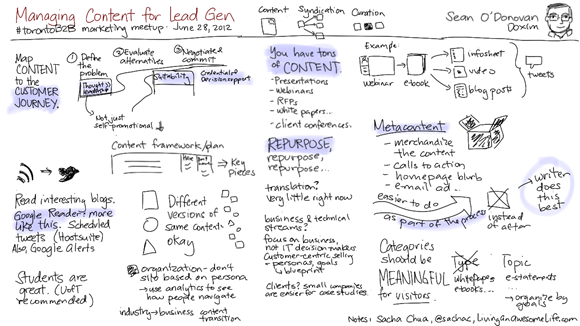 Managing Content for Lead Gen
#torontoB2B marketing meetup · June 28, 2012
Content
Syndication
Curation
Sean O'Donovan
Doxim
Map
CONTENT
to the
CUSTOMER
JOURNEY.
① Define
the
problem
Thought
leadership
② Evaluate
alternatives
Suitability
③ Negotiate &
commit
Credentials
Decision support
Not just
self-promotional
Content framework/plan
Have
Key
Pieces
You have tons
of CONTENT.
- Presentations
- Webinars
- RFPs
- White papers...
- client conferences...
Example:
webinar
e-book
infosheet
video
blog posts
tweets
REPURPOSE,
repurpose,
repurpose...
translation?
Very little right now
business & technical
streams?
focus on business,
not IT decision makers.
Customer-centric selling
- personas, goals
blueprint
Clients? small companies
are easier for case studies.
Metacontent
- merchandize
the content
- calls to action
- homepage blurb
- email ad...
easier to do
as part of the process
instead
of after
writer
does
this
best
Read interesting blogs.
Google Reader: more
like this. Scheduled
tweets (Hootsuite)
Also, Google Alerts
Students are
great. (UofT
recommended)
Different
versions of
same content:
okay
organization - don't
silo based on persona
→ use analytics to see
how people navigate
industry → business content
transition
Categories
should be
MEANINGFUL
for visitors.
Type
Whitepapers
e-books...
Topic
e-statements
...
organize by
goals
Notes: Sacha Chua, @sachac, livinganawesomelife.com